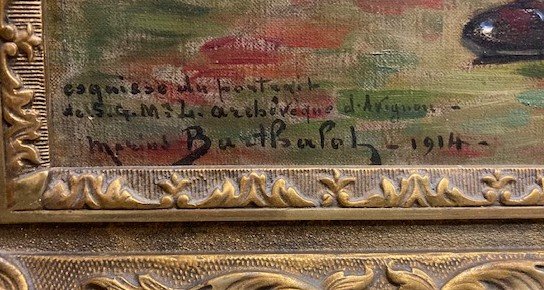 esquisse du portrait
de S. G. Mgr L. archevêque d'Avignon -
Marius Barthalot - 1914 -